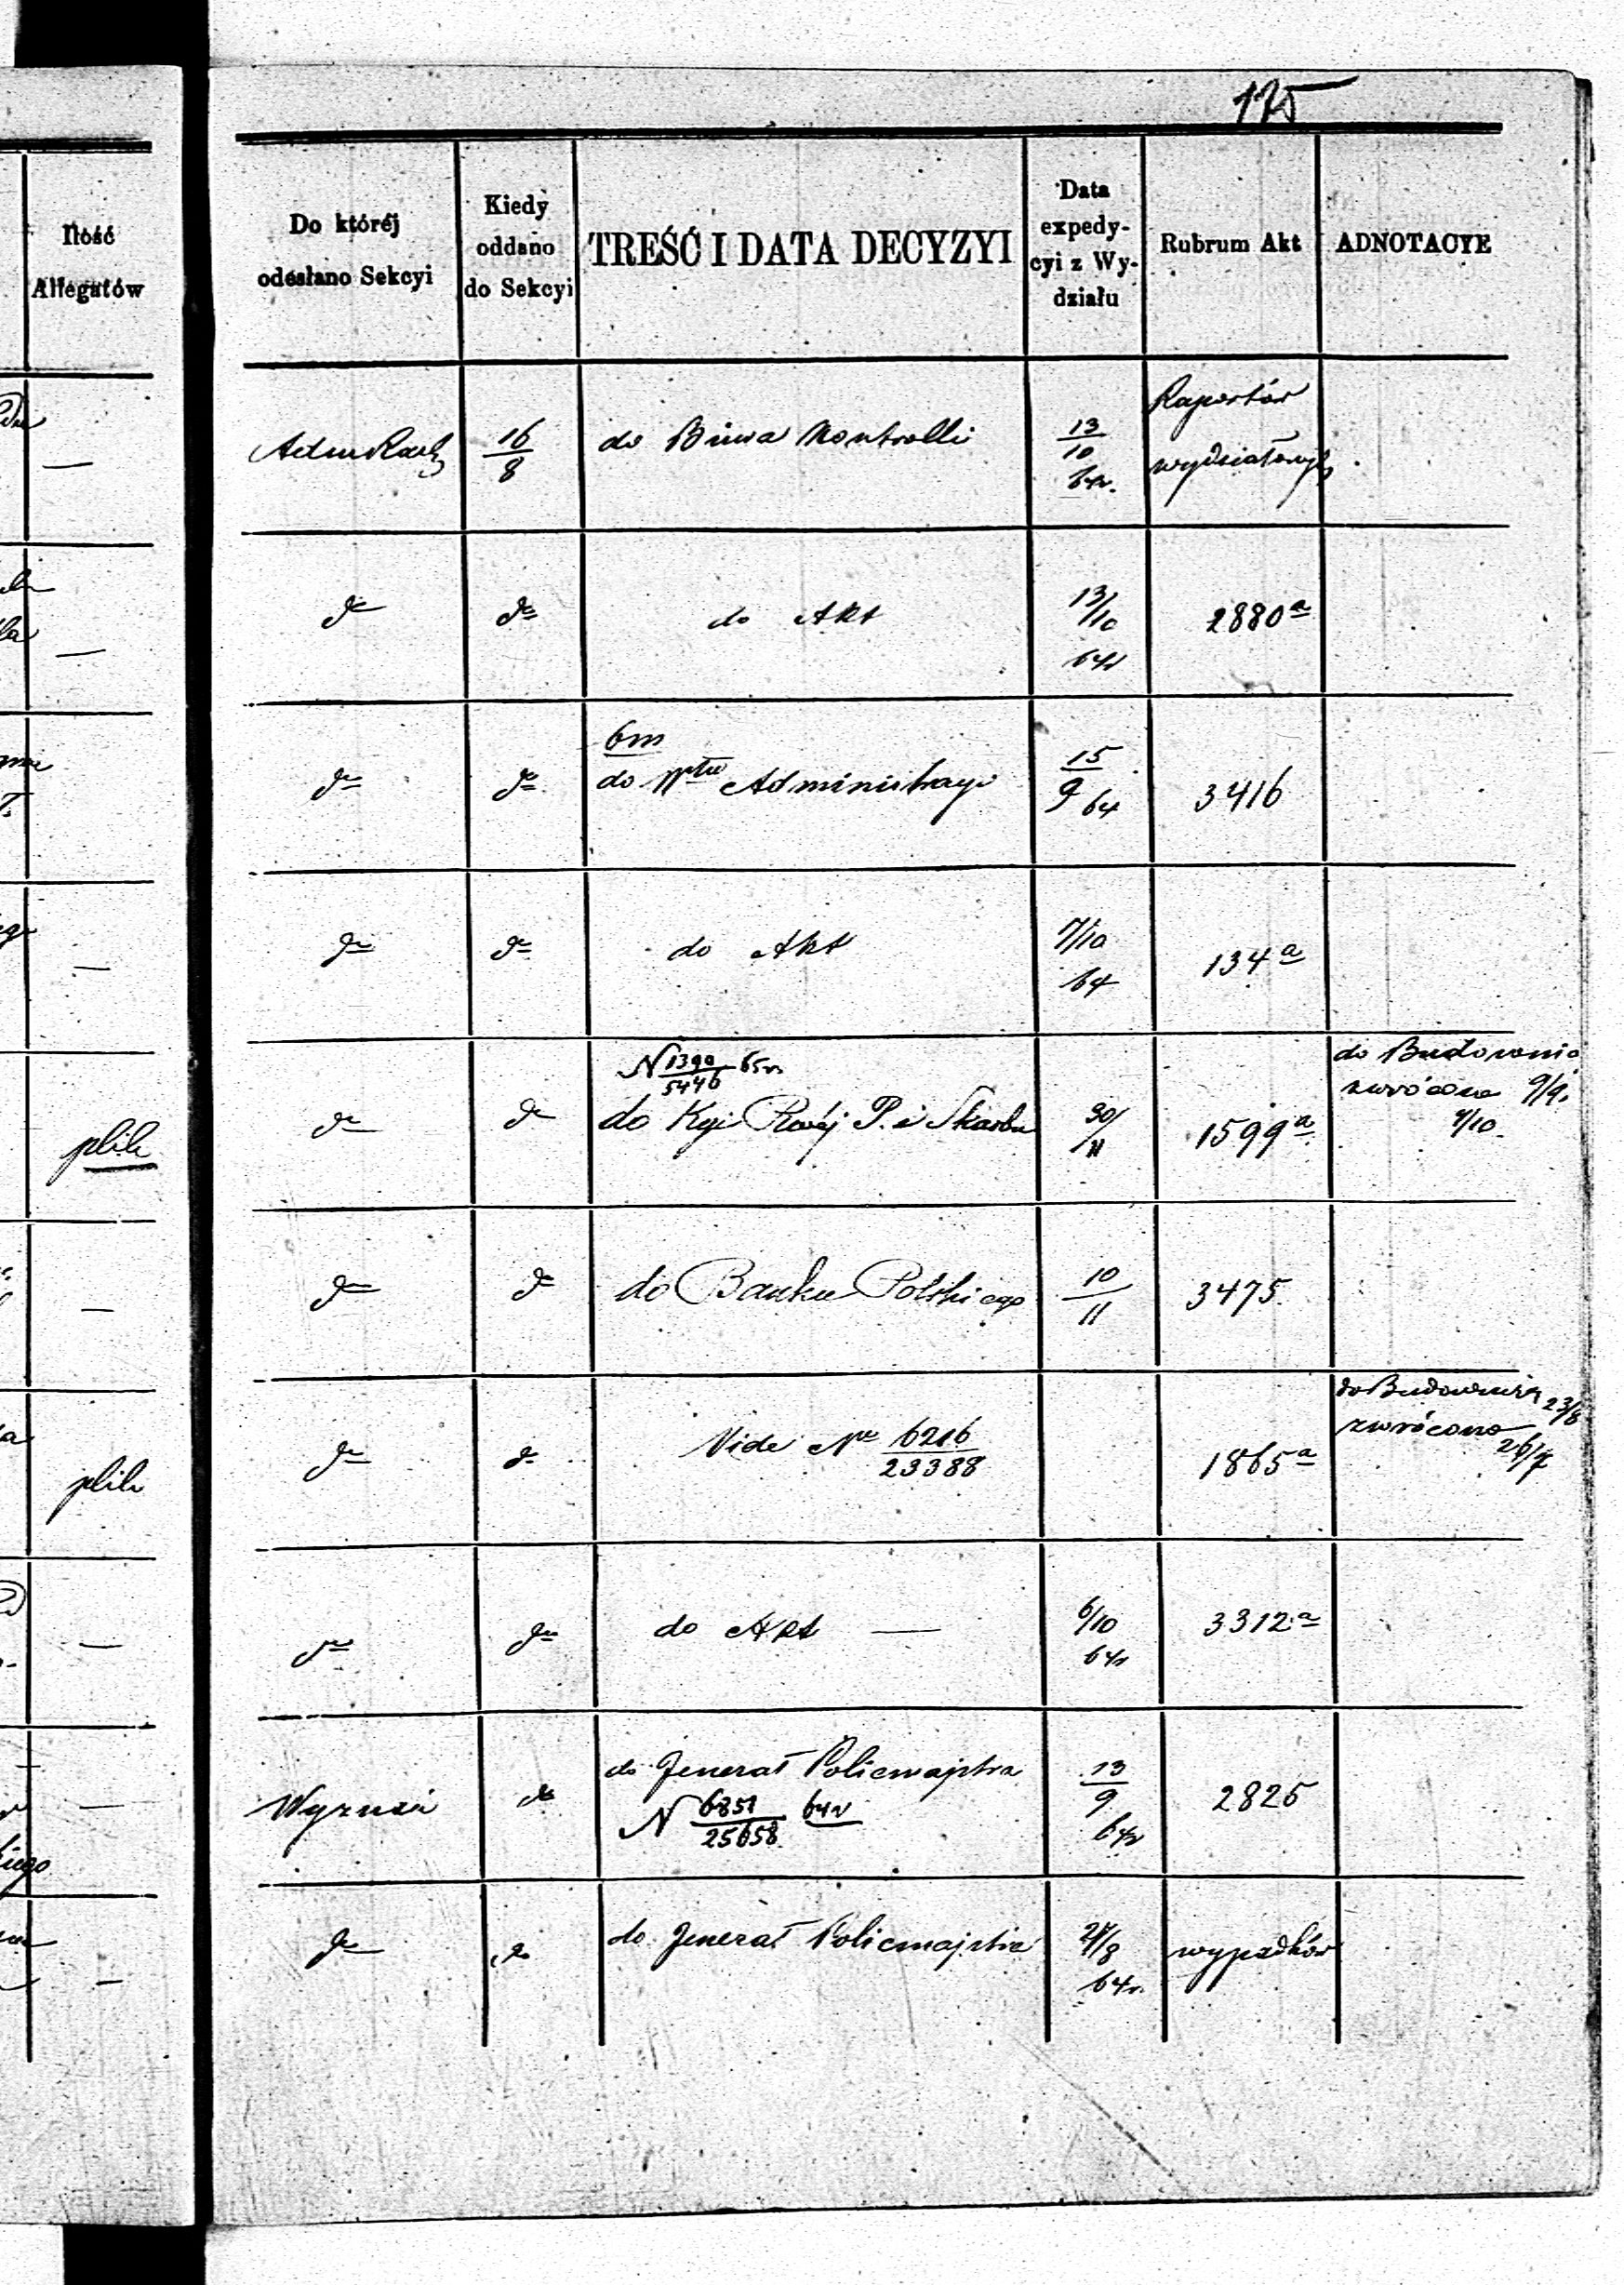 175
Ilość
Allegatów
Do któréj
odesłano Sekcyi
Kiedy
oddano
do Sekcyi
TREŚĆ I DATA DECYZYI
Data
expedy-
cyi z Wy-
działu
Rubrum Akt
ADNOTACYE
16/8
do Biura Kontrolli
13/10
64r.
Raportów
wydziałowych
—
do
do
do Akt
13/10
64r
2880a
—
do
do
6m
do Administracyi
15/9 64
3416
do
do
do Akt
7/10
64
134a
—
do
do
N 1390/5446 65r
do Kcyi Rządéj P. i Skarbu
30/11
1599a
do Budownic
zwrócono 9/9.
1/10.
plik
do
do
do Banku Polskiego
10/11
3475
—
do
do
Vide Nr 6216/23388
1865a
do Budownicz 23/8
zwrócono
26/7
plik
do
do
do Akt —
6/10
64r
3312a
—
do
do Jenerał Policmajstra
N 6851/25658 64r
13/9
64r
2825
—
do
do
do Jenerał Policmajstra
64r.
wypadków
—